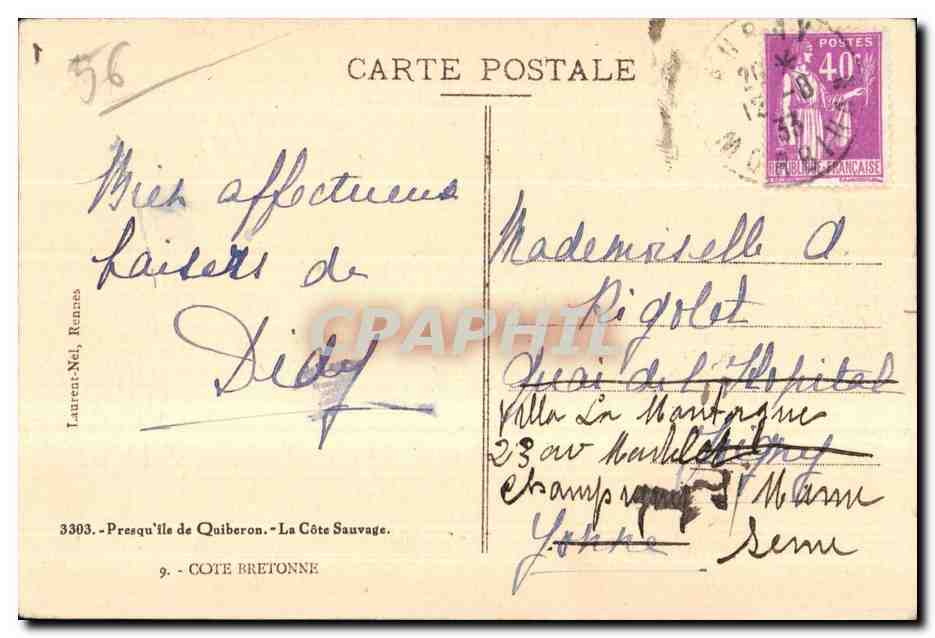 56
CARTE POSTALE
POSTES
40
REPUBLIQUE FRANÇAISE
MORBIHAN
33
Bien affectueux
baisers de
Didy
Mademoiselle A.
Rigolet
Quai de l'Hopital
Villa La Montagne
23 av
Joigny
Champigny s/ Marne
Yonne Seine
Laurent-Nel, Rennes
CPAPHIL
3303. - Presqu'ile de Quiberon. - La Côte Sauvage.
9. - COTE BRETONNE